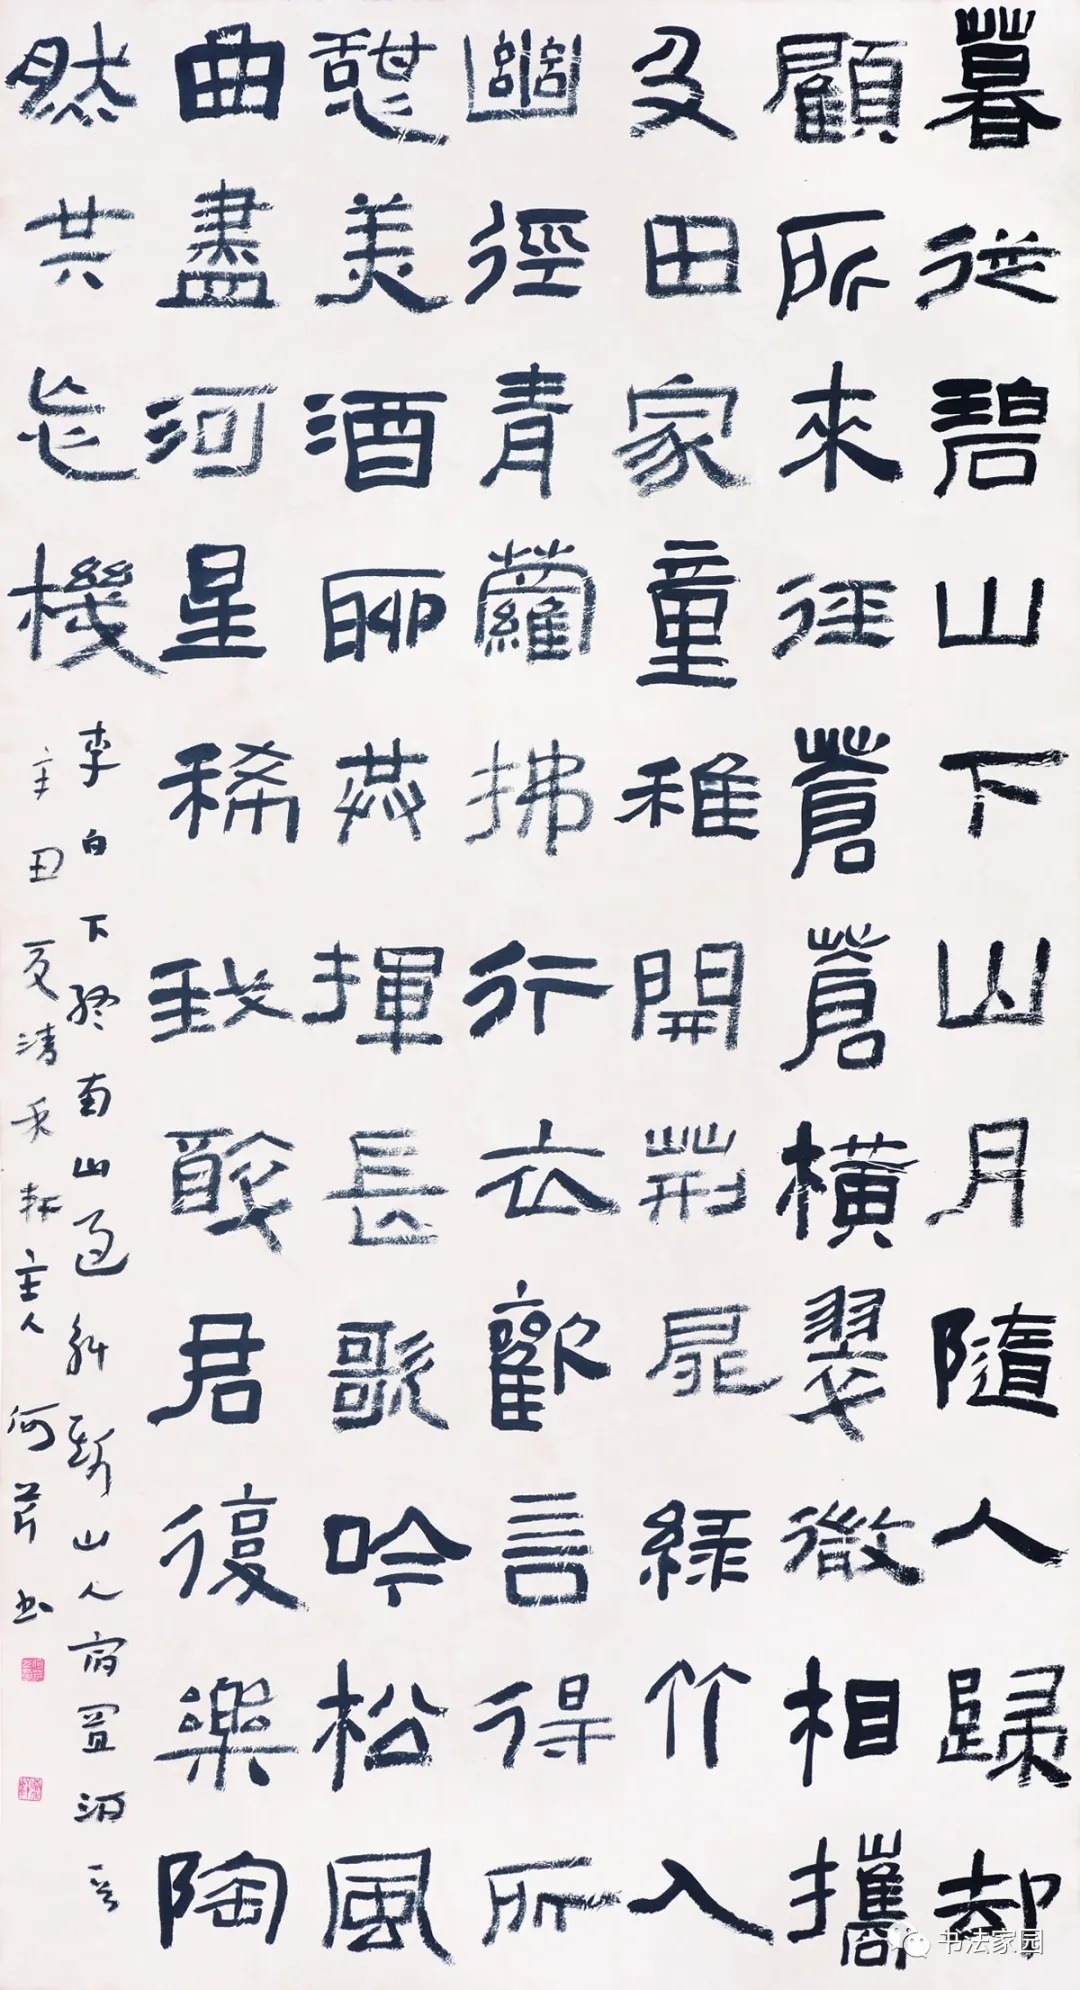 暮從碧山下山月隨人歸却
顧所來徑蒼蒼橫翠微相攜
及田家童稚開荊扉綠竹入
幽徑青蘿拂行衣歡言得所
憩美酒聊共揮長歌吟松風
曲盡河星稀我醉君復樂陶
然共忘機
李白下終南山過斛斯山人宿置酒
辛丑夏清禾軒主人何芹书
书法家园